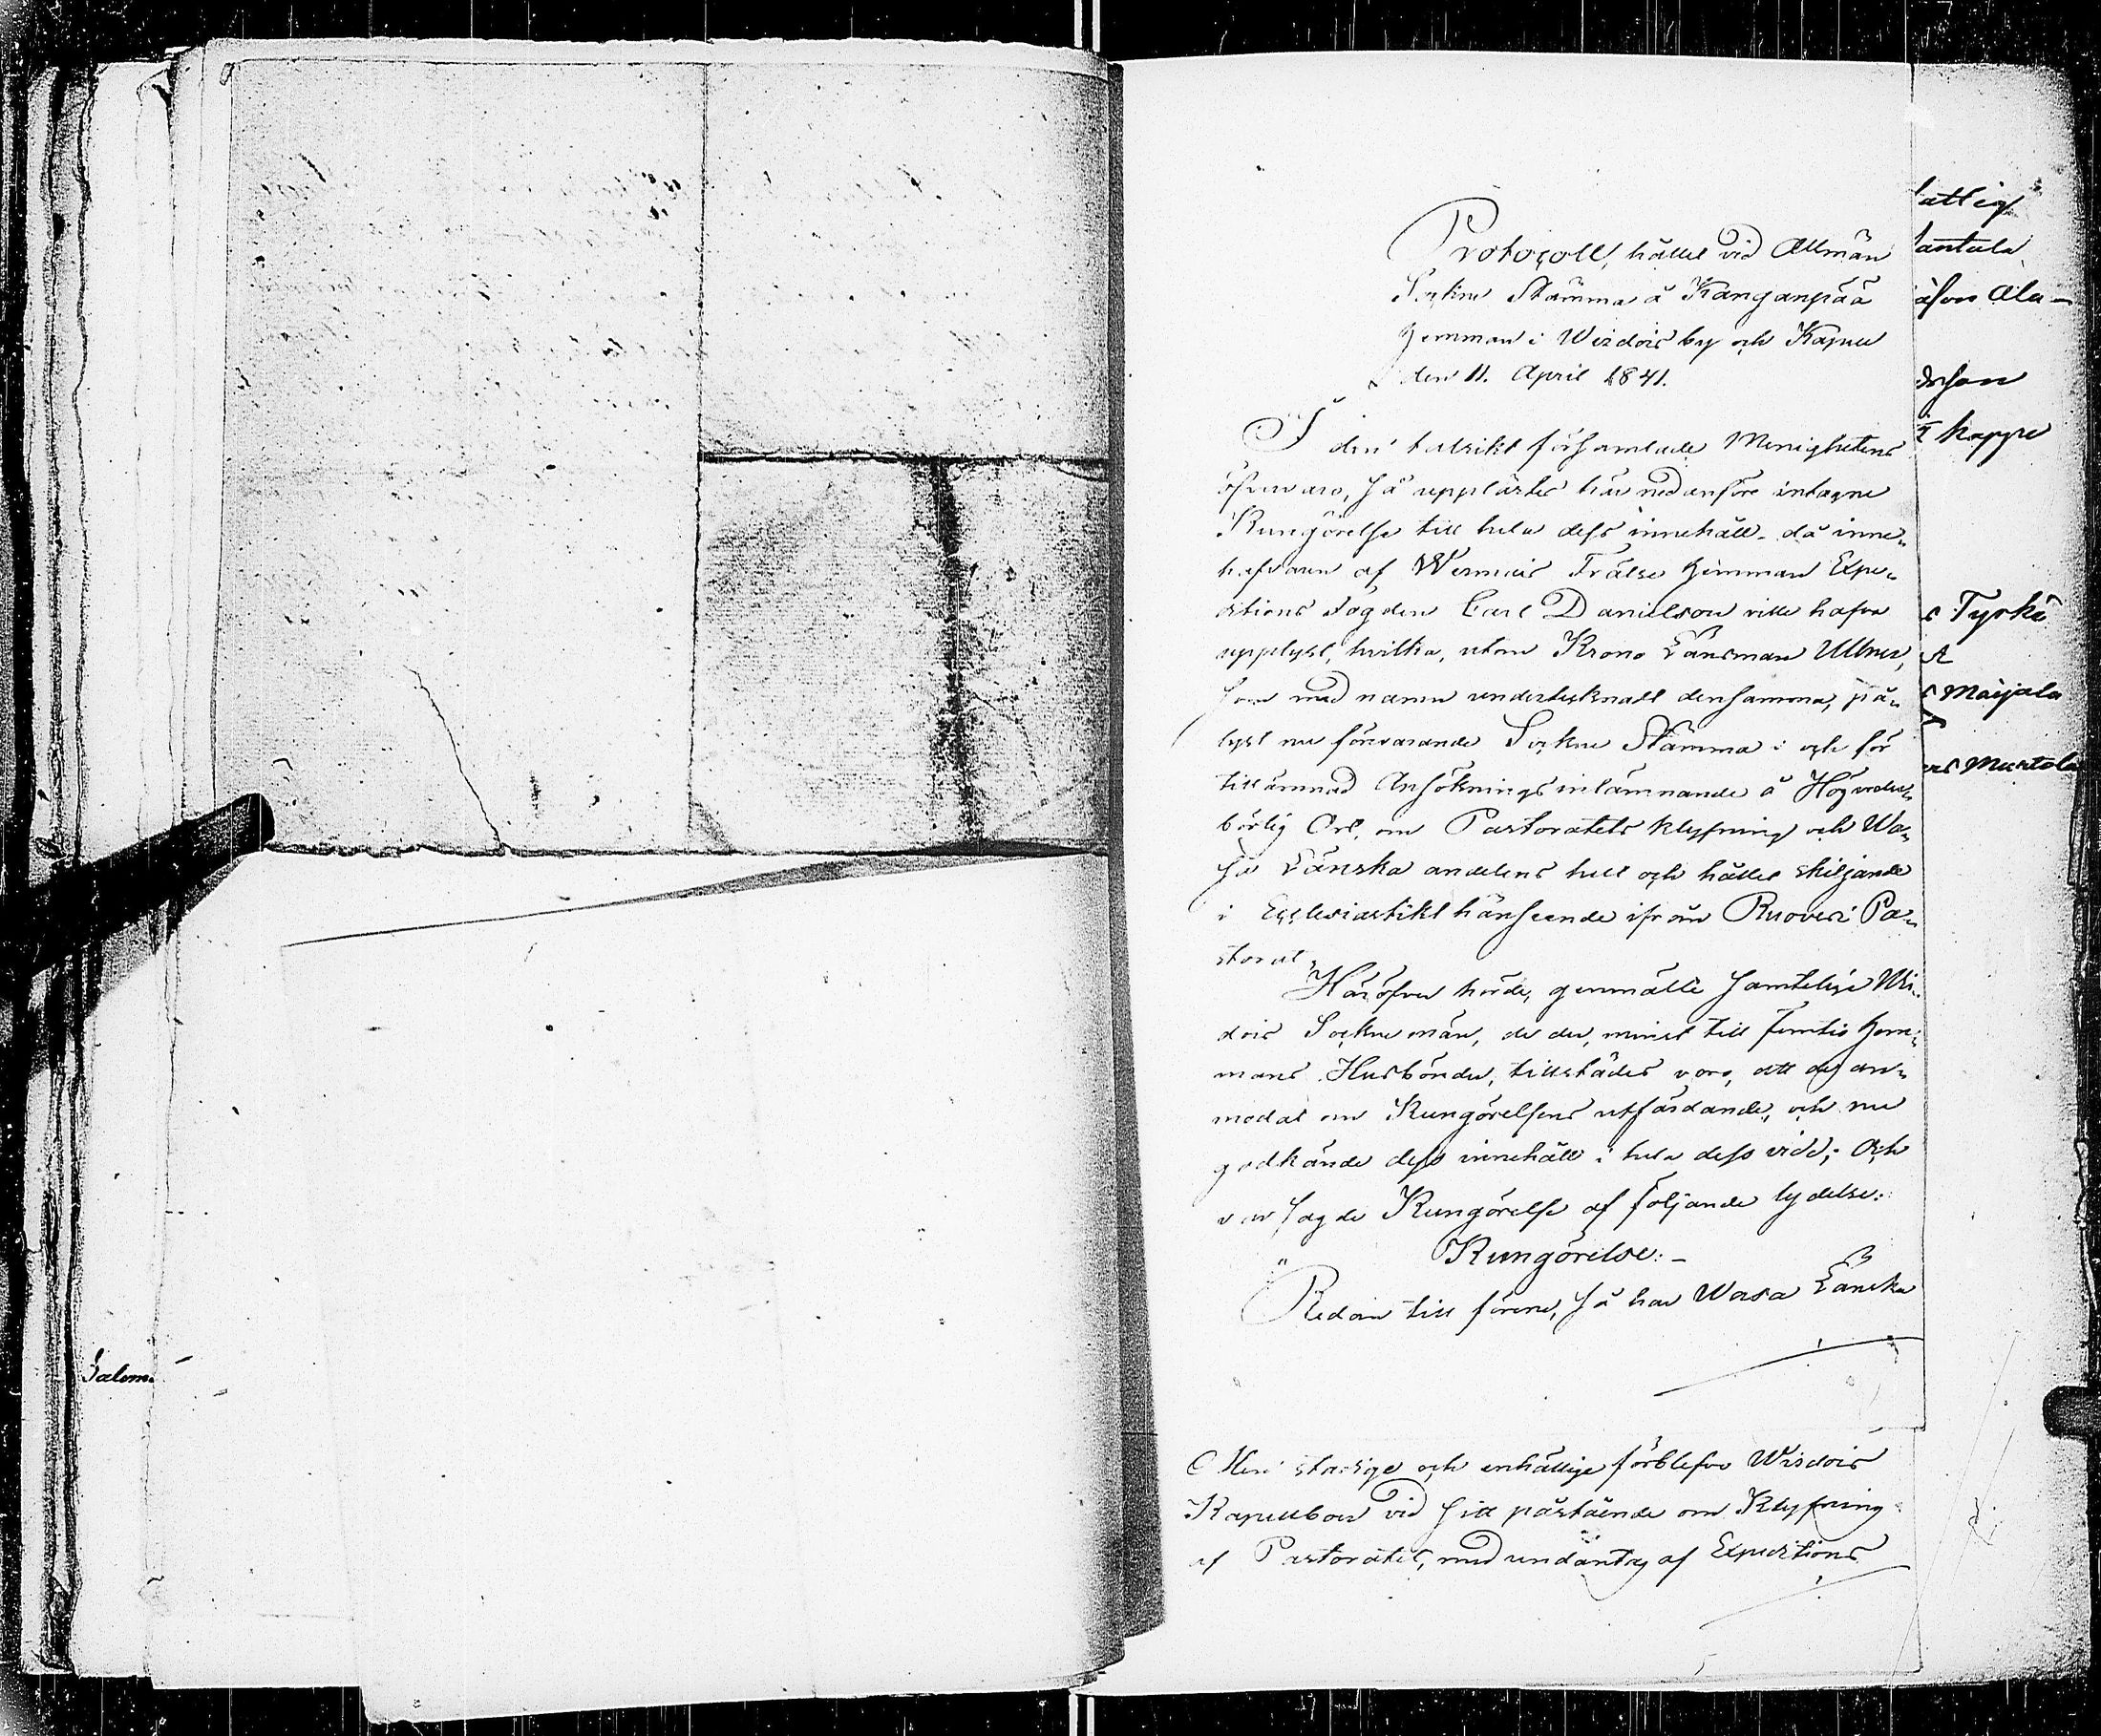 Protocoll, hållet vid Allmän
Sockne Stämma å Kanganpää
Hemman i Wirdois by och Kapell
den 11. April 1841.
I den talrikt församlade Menighetens
öfvervaro, så upplästes här nedanföre intagne
Kungörelse till hela dess innehåll. då inne-
hafvaren af Wermais Frälse Hemman Expe-
ditions Fogden Carl Danielson ville hafva
upplyst, hvilka, utom Krono Länsman Ullner,
som med namn undertecknatt densamma, på-
lyst nu förevarande Sockne Stämma i och för
tillämnad Ansöknings inlämnande å Högveder-
börlig Ort, om Pastoratets klyfning och Wa-
sa Länska andelens helt och hållet skiljande
i Ecclesiastikt hänseende ifrån Ruovesi Pa-
storat,
Häröfver hörde, genmälte samtelige Wir-
dois Sockne män, de der, minst till femtio Hem-
mans Husbönder, tillstädes voro, att de an-
modat om Kungörelsens utfärdande, och nu
godkände dess innehåll i hela dess vidd; Och
var sagde Kungörelse af följande lydelse:
" Kungörelse: -
Redan till förene, så har Wasa Länska
Men stadige och enhällige förblefvo Wirdois
Kapellboer vid sitt påstående om Klyfning
af Pastoratet, med undantag af Expeditions
attig
antala
åson Ala-
dsson
kappe
s Tyrkö
A
s Maijala
ers Murtola
Salom.